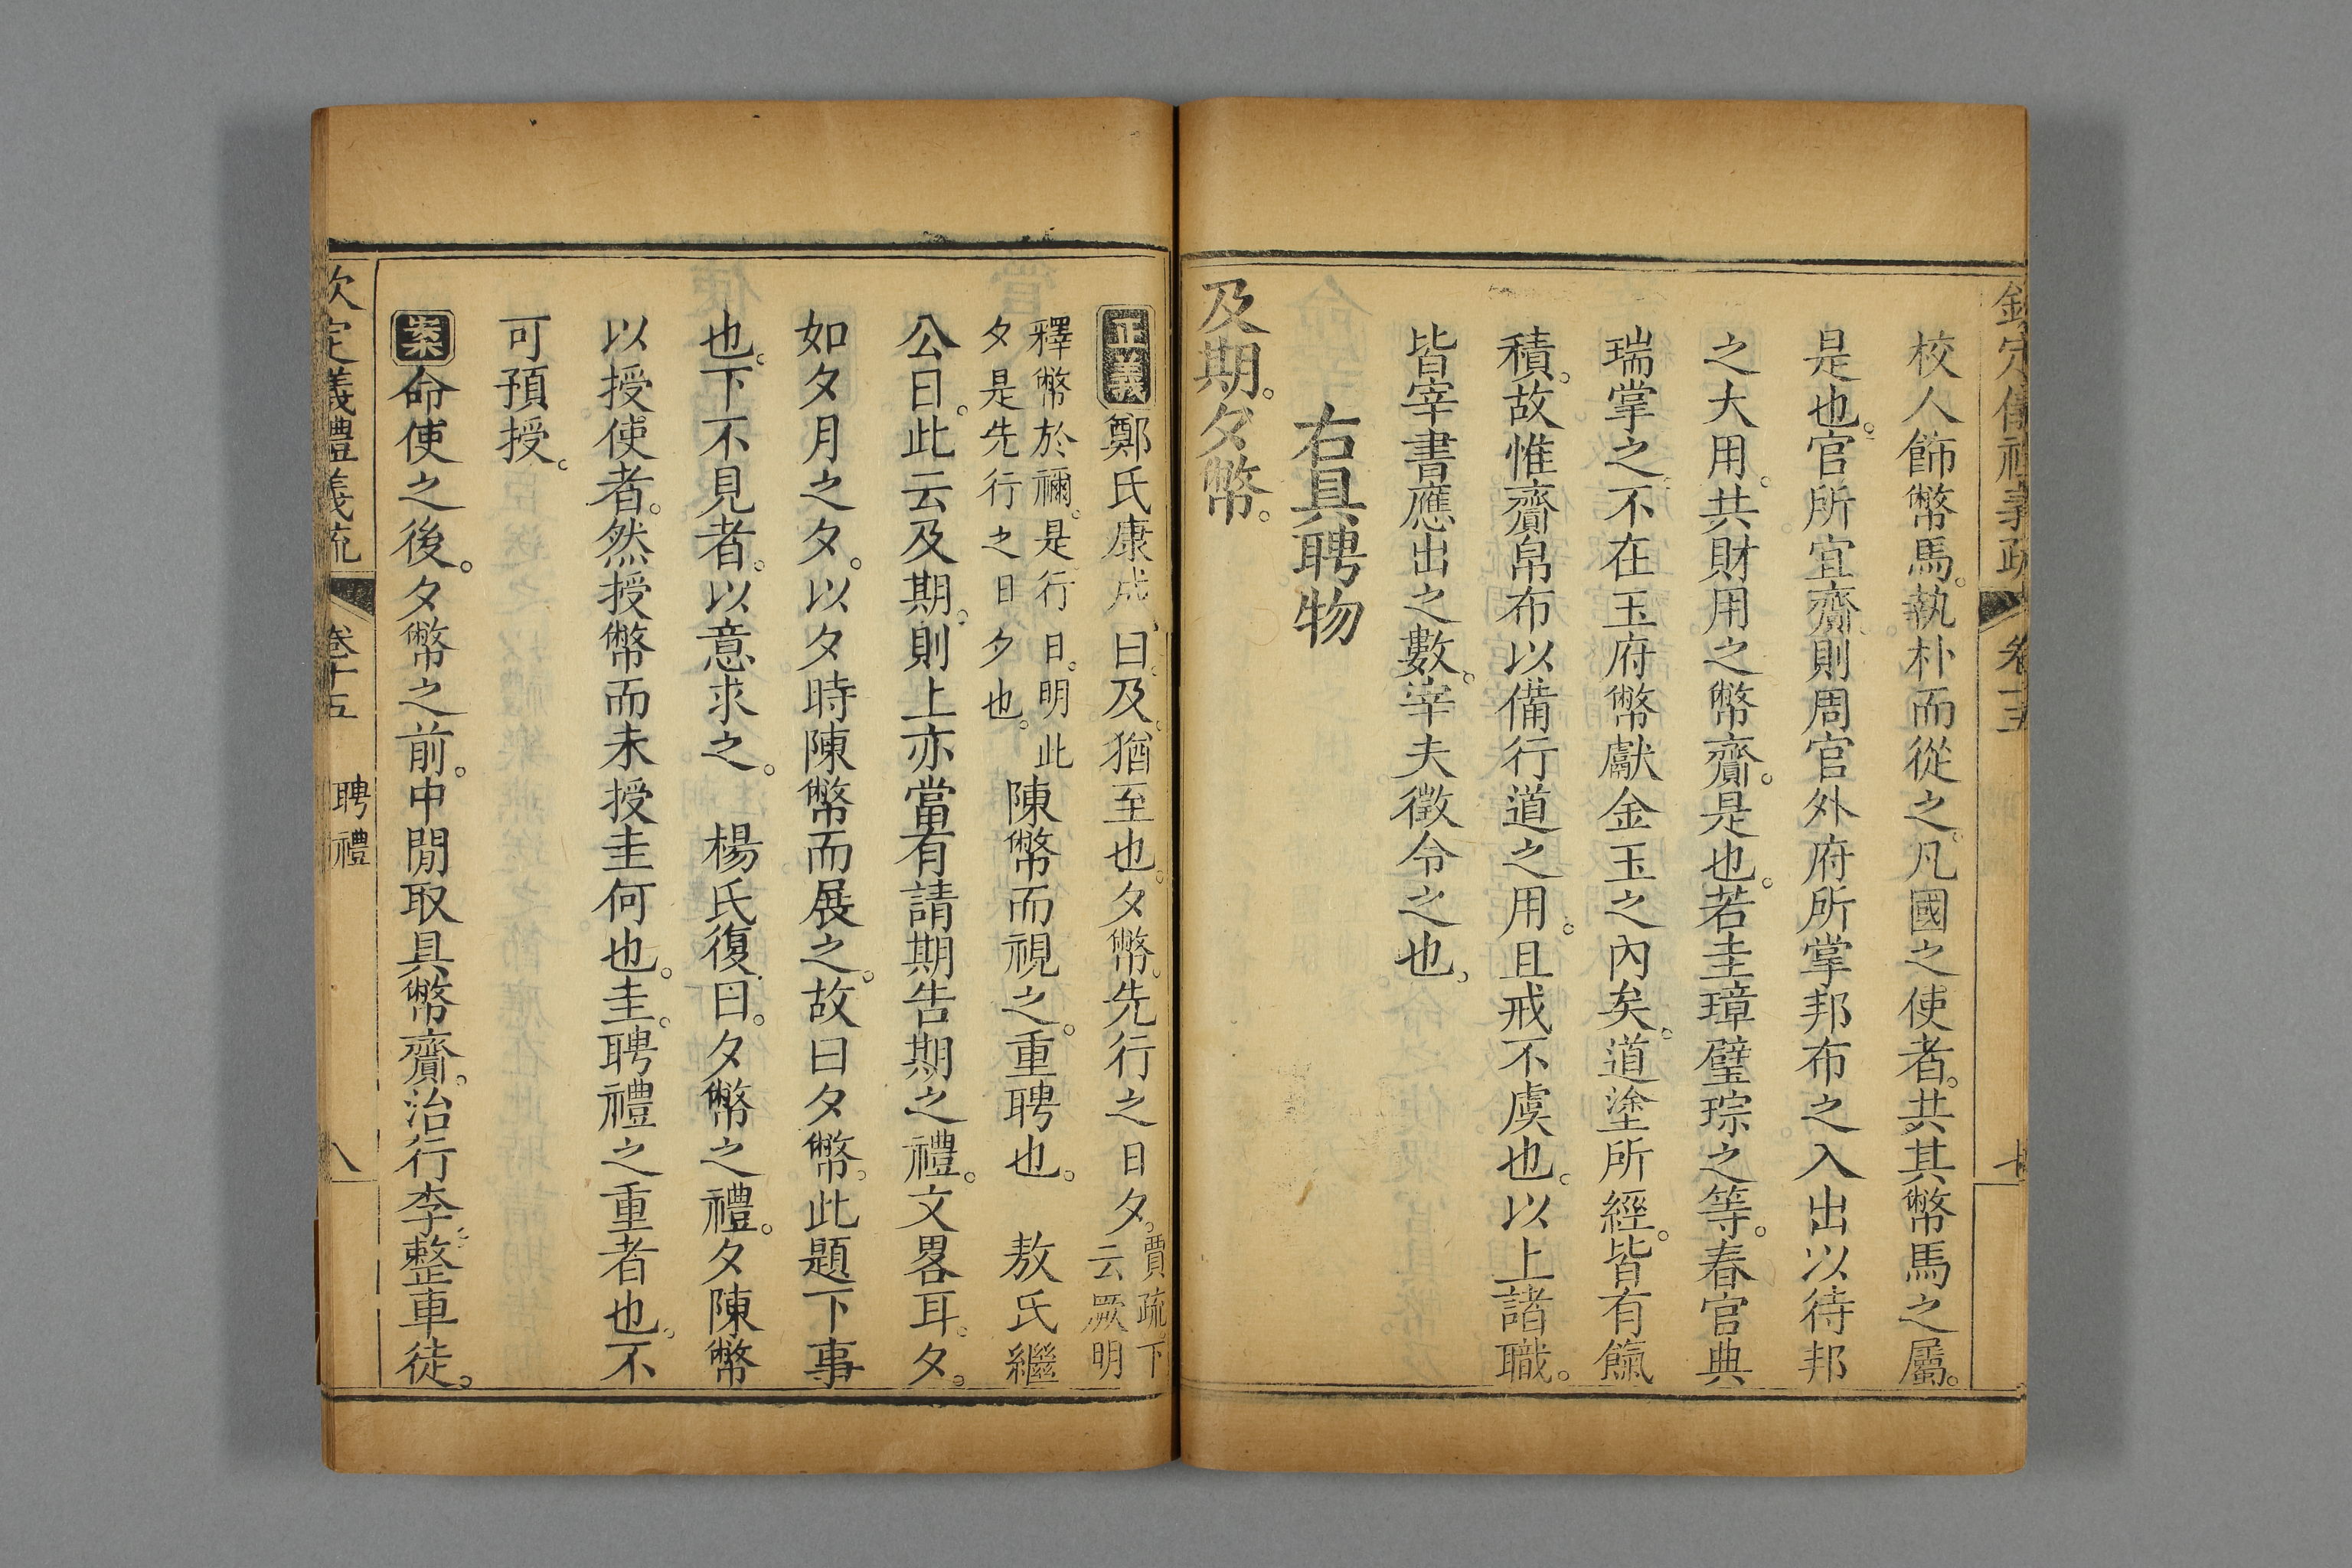 欽定儀禮義疏 卷十五 七
校人飾幣馬。執朴而從之。凡國之使者。共其幣馬之屬。
是也。官所宜齎則周官外府所掌邦布之入出以待邦
之大用。共財用之幣齎。是也。若圭璋璧琮之等。春官典
瑞掌之。不在玉府幣獻金玉之內矣。道塗所經。皆有餼
積。故惟齎帛布以備行道之用。且戒不虞也。以上諸職。
皆宰書應出之數。宰夫徵令之也。
右具聘物
及期。夕幣。
正義 鄭氏康成曰。及。猶至也。夕幣。先行之日夕。賈疏下云厥明
釋幣於禰。是行日。明此夕是先行之日夕也。 陳幣而視之。重聘也。 敖氏繼
公曰。此云及期。則上亦當有請期告期之禮。文畧耳。夕。
如夕月之夕。以夕時陳幣而展之。故曰夕幣。此題下事
也。下不見者。以意求之。 楊氏復曰。夕幣之禮。夕陳幣
以授使者。然授幣而未授圭何也。圭。聘禮之重者也。不
可預授。
案 命使之後。夕幣之前。中閒取具幣齎。治行李。整車徒。
欽定儀禮義疏 卷十五 聘禮 八